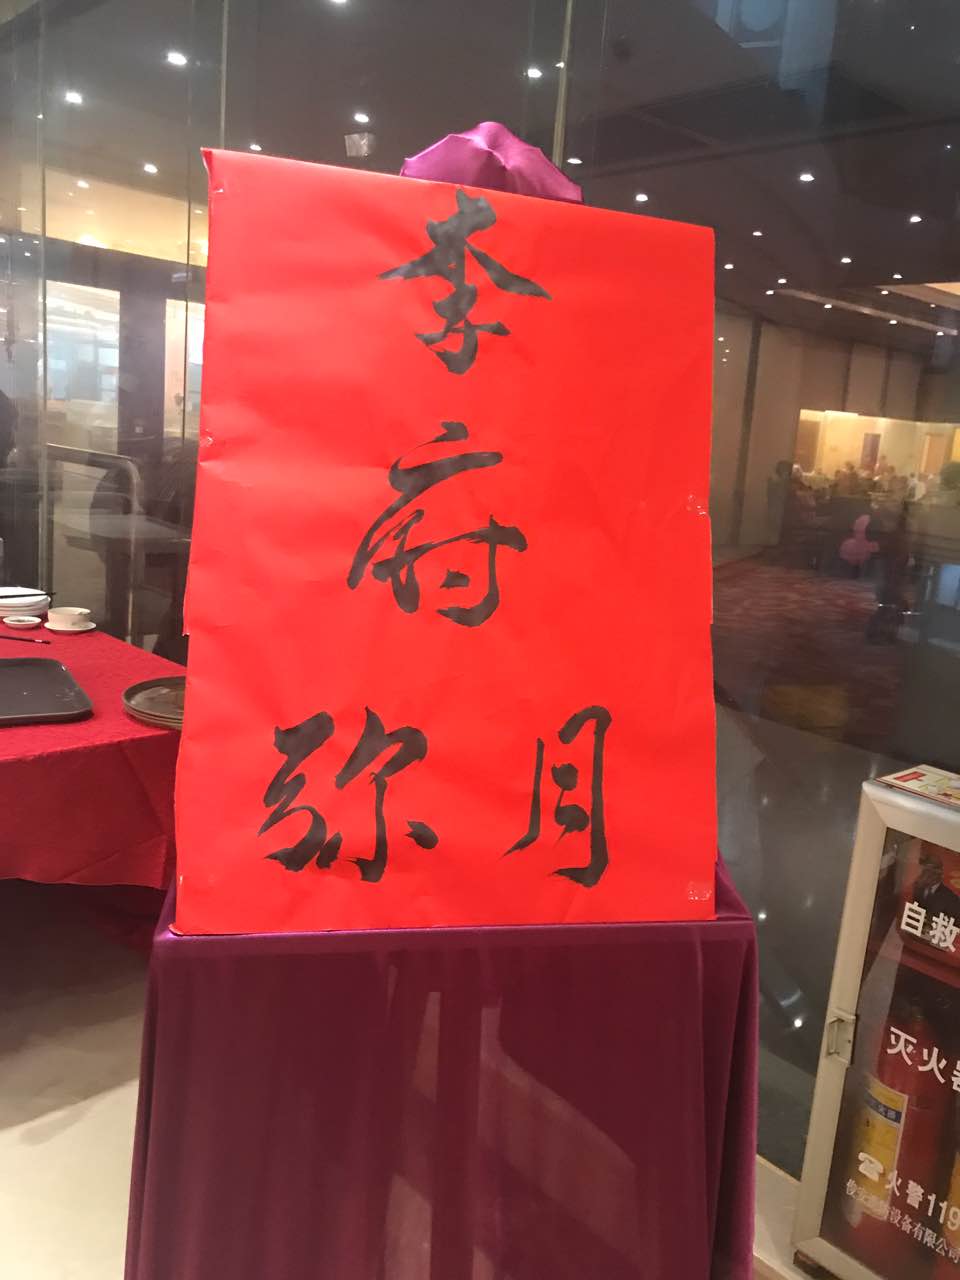 李
府
弥月
自救
灭火器
火警119
设备有限公司